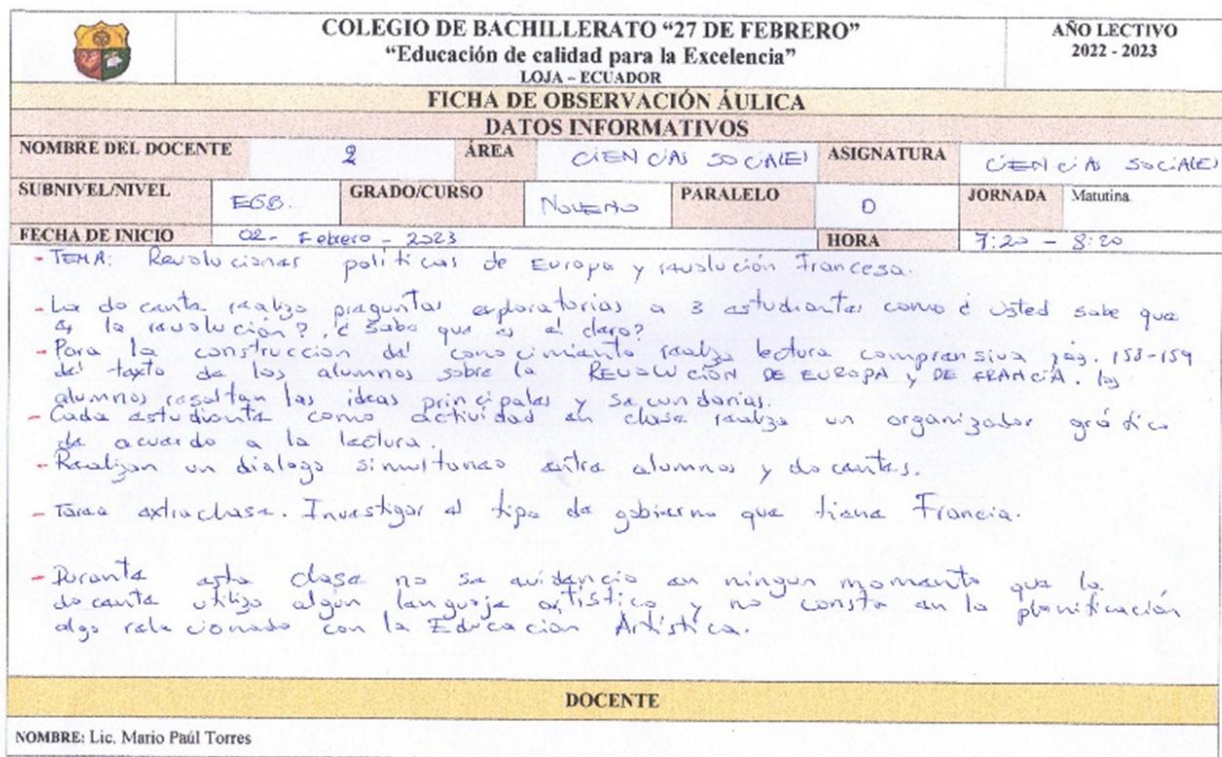 COLEGIO DE BACHILLERATO “27 DE FEBRERO”
“Educación de calidad para la Excelencia”
LOJA – ECUADOR
AÑO LECTIVO
2022 - 2023
FICHA DE OBSERVACIÓN ÁULICA
DATOS INFORMATIVOS
NOMBRE DEL DOCENTE 2 ÁREA CIENCIAS SOCIALES ASIGNATURA CIENCIAS SOCIALES
SUBNIVEL/NIVEL EGB. GRADO/CURSO NOVENO PARALELO D JORNADA Matutina
FECHA DE INICIO 02- Febrero - 2023 HORA 7:20 - 8:20
- TEMA: Revoluciones políticas de Europa y revolución Francesa.
- La docente realizo preguntas exploratorias a 3 estudiantes como ¿Usted sabe que
es la revolución?, ¿Sabe que es el clero?
- Para la construcción del conocimiento realizo lectura comprensiva pág. 158-159
del texto de los alumnos sobre la REVOLUCIÓN DE EUROPA Y DE FRANCIA. los
alumnos resaltan las ideas principales y secundarias.
- Cada estudiante como actividad en clase realizo un organizador gráfico
de acuerdo a la lectura.
- Realizan un dialogo simultaneo entre alumnos y docentes.
- Tarea extraclase. Investigar el tipo de gobierno que tiene Francia.
- Durante esta clase no se evidencio en ningun momento que la
docente utilizo algun lenguaje artístico y no consta en la planificación
algo relacionado con la Educacion Artística.
DOCENTE
NOMBRE: Lic. Mario Paúl Torres